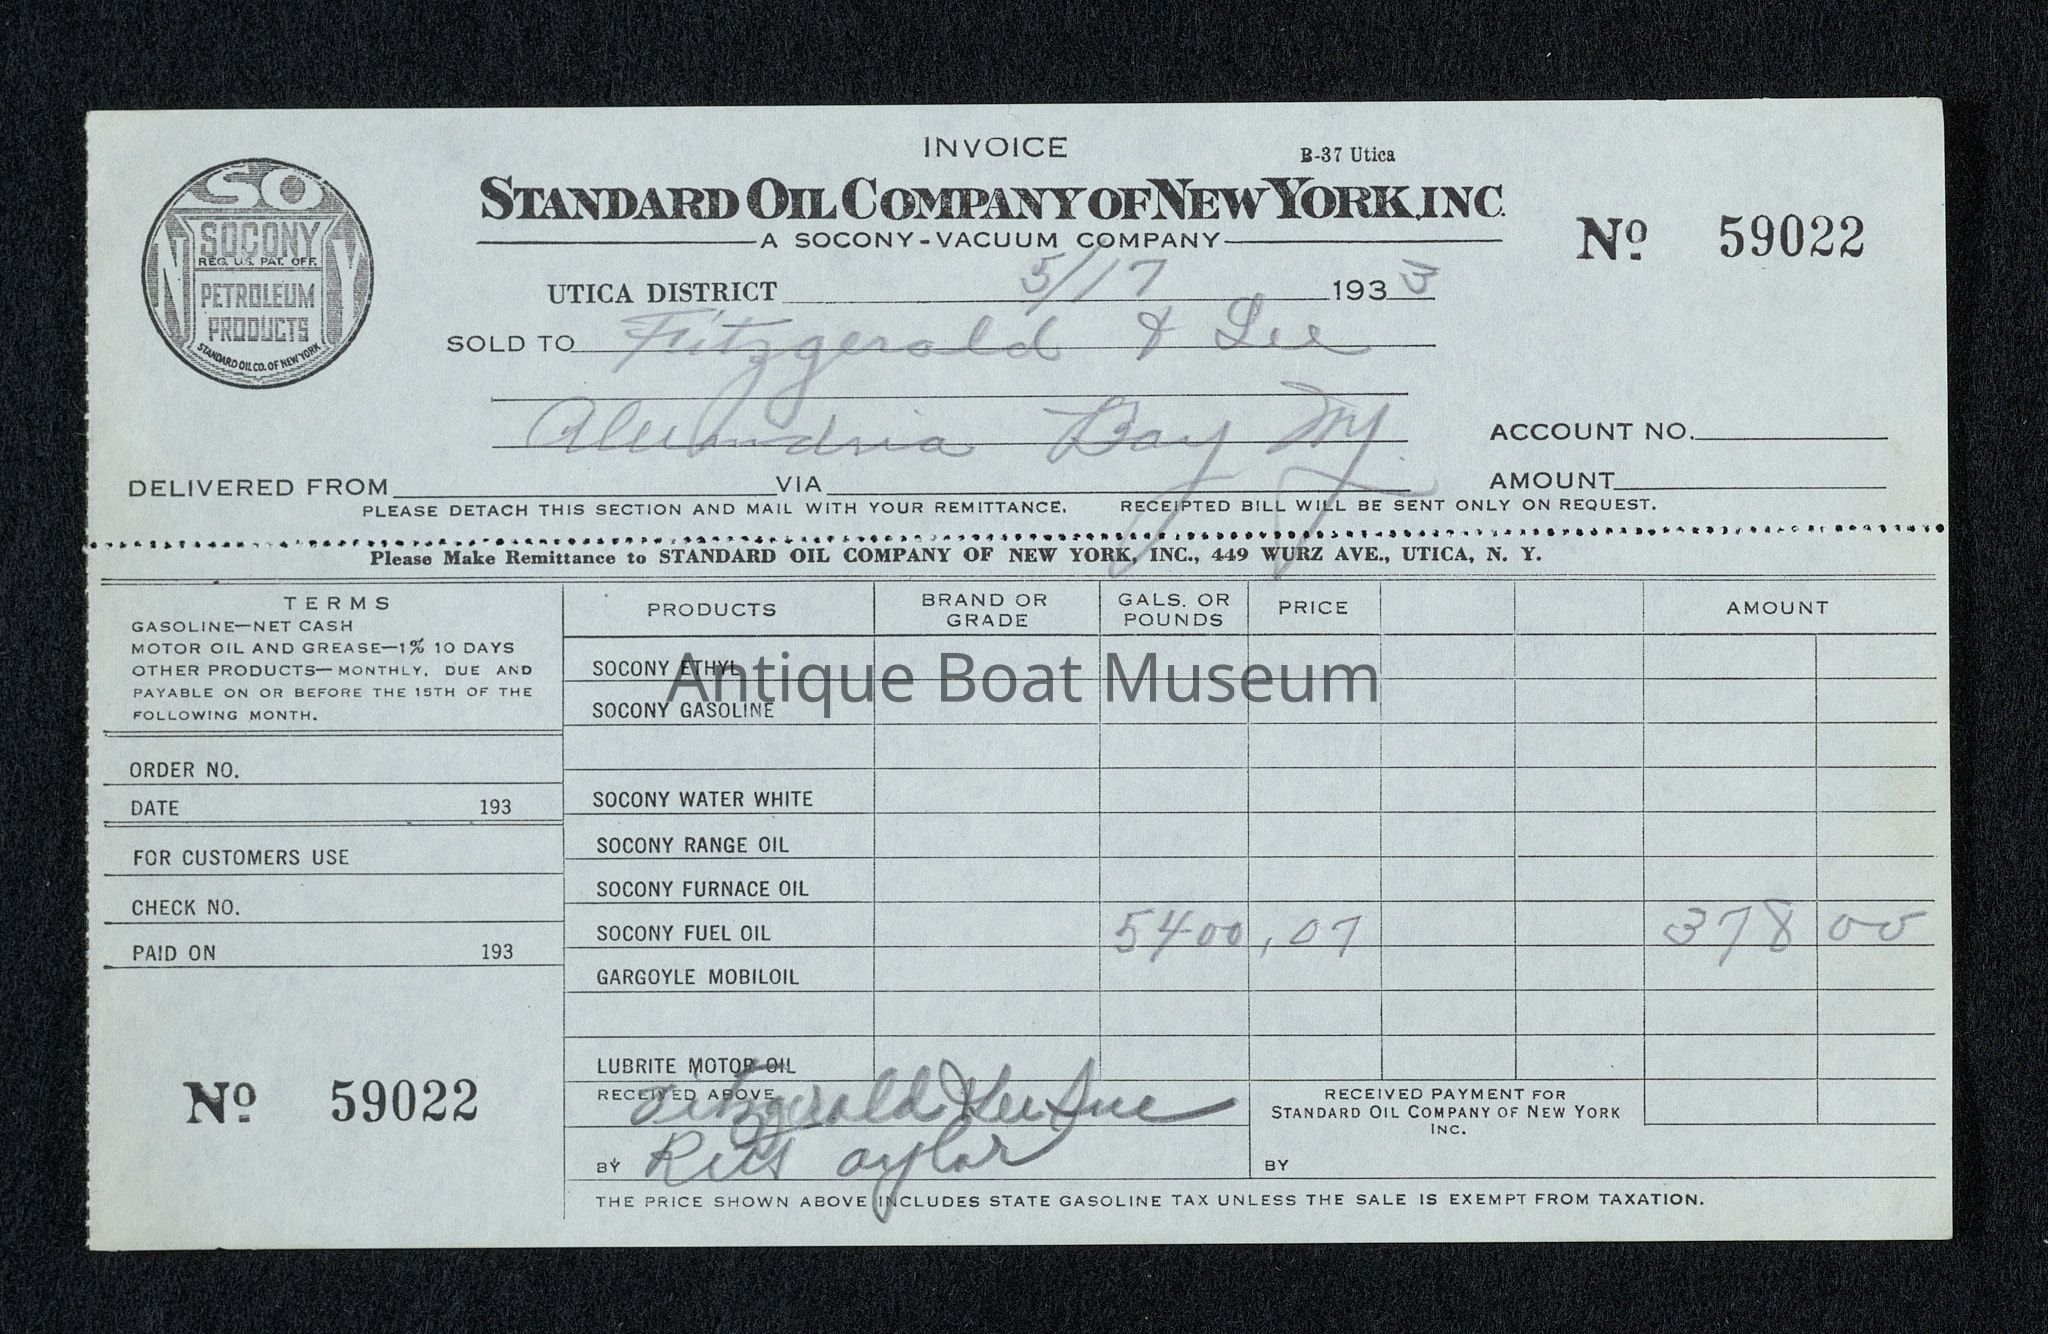 INVOICE
B-37 Utica
SO
NY
SOCONY
REG. U.S. PAT. OFF.
PETROLEUM
PRODUCTS
STANDARD OIL CO. OF NEW YORK
STANDARD OIL COMPANY OF NEW YORK, INC.
A SOCONY-VACUUM COMPANY
No 59022
UTICA DISTRICT 5/17 1933
SOLD TO Fitzgerald & Lee
Alexandria Bay N.Y.
ACCOUNT NO.
DELIVERED FROM VIA AMOUNT
PLEASE DETACH THIS SECTION AND MAIL WITH YOUR REMITTANCE. RECEIPTED BILL WILL BE SENT ONLY ON REQUEST.
Please Make Remittance to STANDARD OIL COMPANY OF NEW YORK, INC., 449 WURZ AVE., UTICA, N. Y.
TERMS
GASOLINE—NET CASH
MOTOR OIL AND GREASE—1% 10 DAYS
OTHER PRODUCTS—MONTHLY, DUE AND
PAYABLE ON OR BEFORE THE 15TH OF THE
FOLLOWING MONTH.
ORDER NO.
DATE 193
FOR CUSTOMERS USE
CHECK NO.
PAID ON 193
No 59022
PRODUCTS BRAND OR GRADE GALS. OR POUNDS PRICE AMOUNT
SOCONY ETHYL
Antique Boat Museum
SOCONY GASOLINE
SOCONY WATER WHITE
SOCONY RANGE OIL
SOCONY FURNACE OIL
SOCONY FUEL OIL 5400 .07 378 00
GARGOYLE MOBILOIL
LUBRITE MOTOR OIL
RECEIVED ABOVE Fitzgerald & Lee Inc
BY Taylor
RECEIVED PAYMENT FOR
STANDARD OIL COMPANY OF NEW YORK
INC.
BY
THE PRICE SHOWN ABOVE INCLUDES STATE GASOLINE TAX UNLESS THE SALE IS EXEMPT FROM TAXATION.